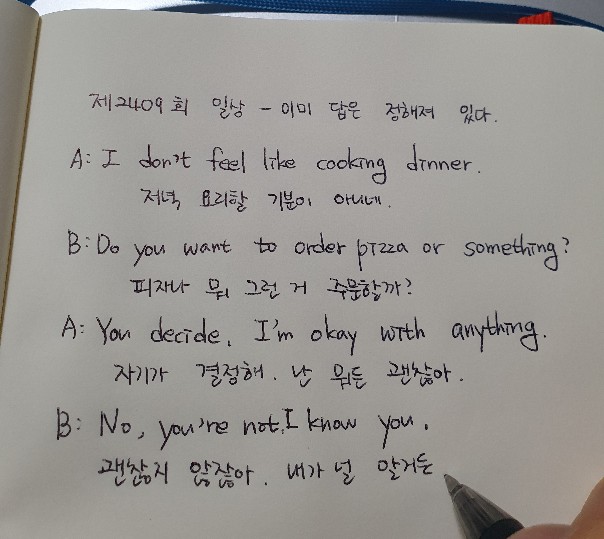 제2409회 일상 - 이미 답은 정해져 있다.
A: I don't feel like cooking dinner.
저녁 요리할 기분이 아니네.
B: Do you want to order pizza or something?
피자나 뭐 그런 거 주문할까?
A: You decide. I'm okay with anything.
자기가 결정해. 난 뭐든 괜찮아.
B: No, you're not. I know you.
괜찮지 않잖아. 내가 널 알거든